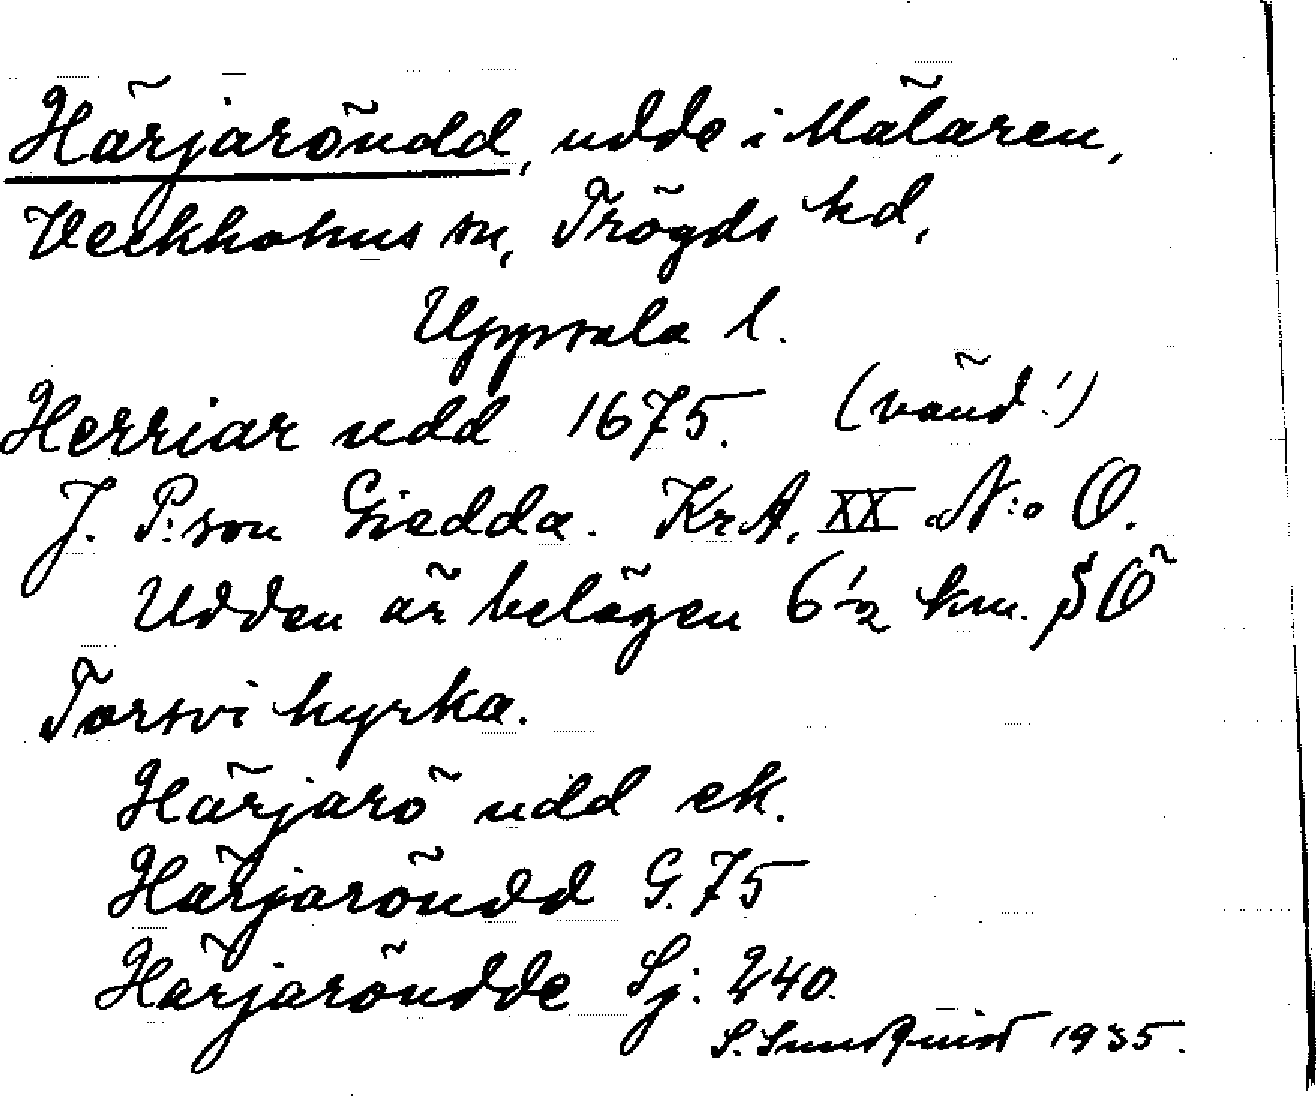 Härjaröudd, udde i Mälaren,
Veckholms sn, Trögds hd,
Uppsala l.
Herriar udd 1675. (vänd!)
J. P:son Giedda. KrA, XX N:o O.
Udden är belägen 6 1/2 km. SÖ
Torsvi kyrka.
Härjarö udd ek.
Härjaröudd G. 75
Härjaröudde Sj. 240.
S. Sundquist 1935.